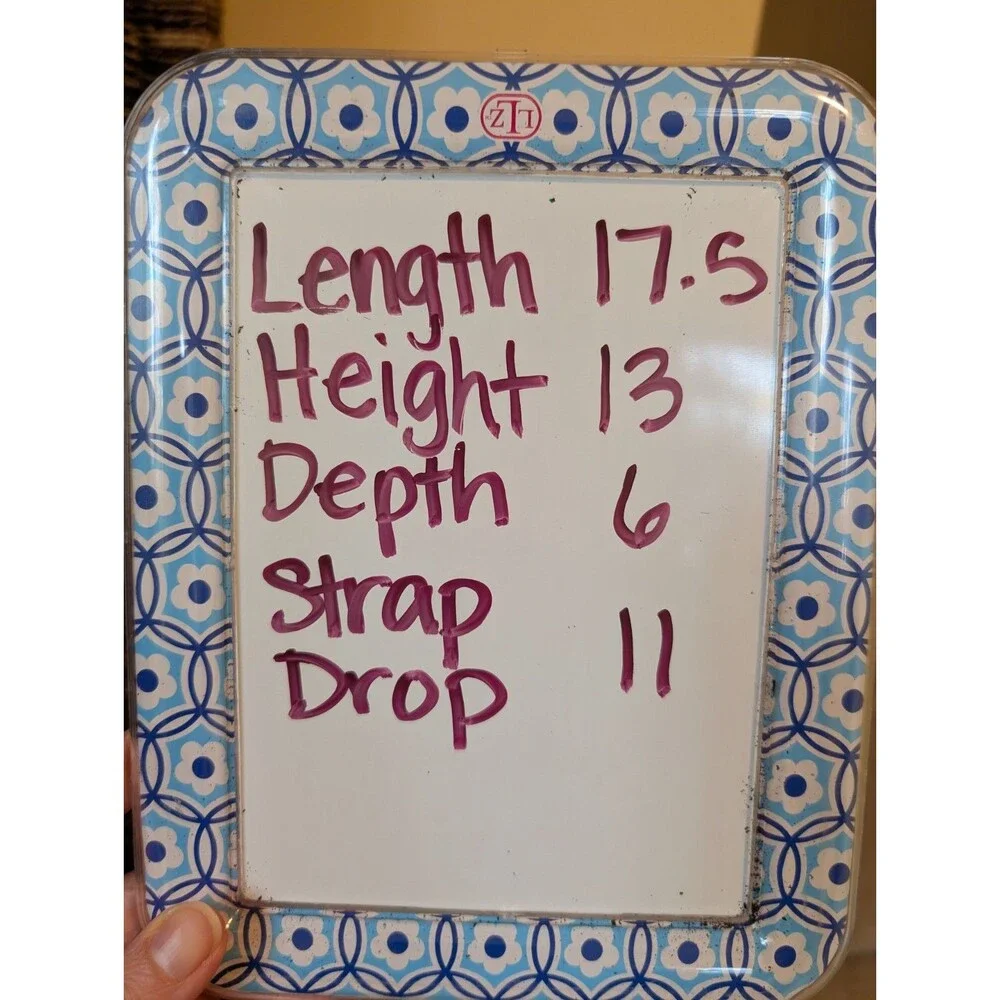 Length 17.5
Height 13
Depth 6
Strap
Drop 11